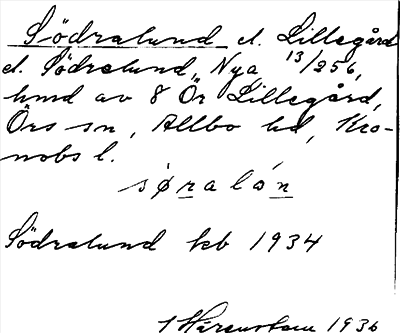 Södralund el. Lillegård
el. Södralund, Nya, 13/256,
hmd av 8 Ör Lillegård,
Örs sn, Allbo hd, Kro-
nobs l.
søralón
Södralund kb 1934
1936